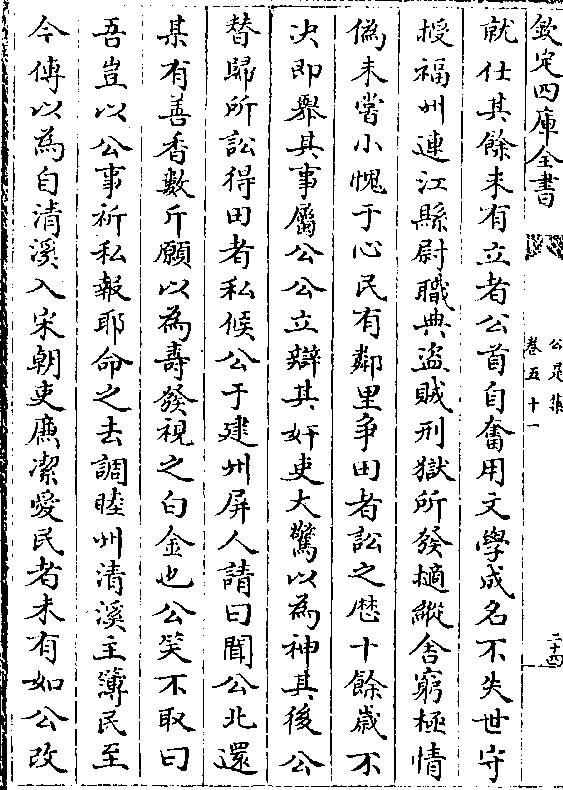 欽定四庫全書
公是集
卷五十一
二十四
就仕其餘未有立者公首自奮用文學成名不失世守
授福州連江縣尉職典盜賊刑獄所發擿縱舍窮極情
偽未嘗小愧于心民有鄰里爭田者訟之歴十餘歲不
決即舉其事屬公公立辯其奸吏大驚以為神其後公
替歸所訟得田者私候公于建州屏人請曰聞公北還
某有善香數斤願以為壽發視之白金也公笑不取曰
吾豈以公事祈私報耶命之去調睦州清溪主簿民至
今傳以為自清溪入宋朝吏廉潔愛民者未有如公改